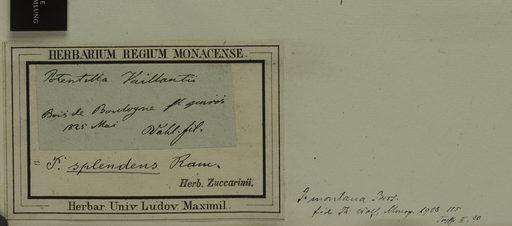 E
MLUNG
HERBARIUM REGIUM MONACENSE.
Potentilla Vaillantii
Bois de Boulogne pr. Paris
1825 Mai
Wahl. fil.
= P. splendens Ram.
Herb. Zuccarinii.
Herbar. Univ. Ludov. Maximil.
P. montana Brot.
fide Th. Wolf, Monogr. 1908 115
II. 20